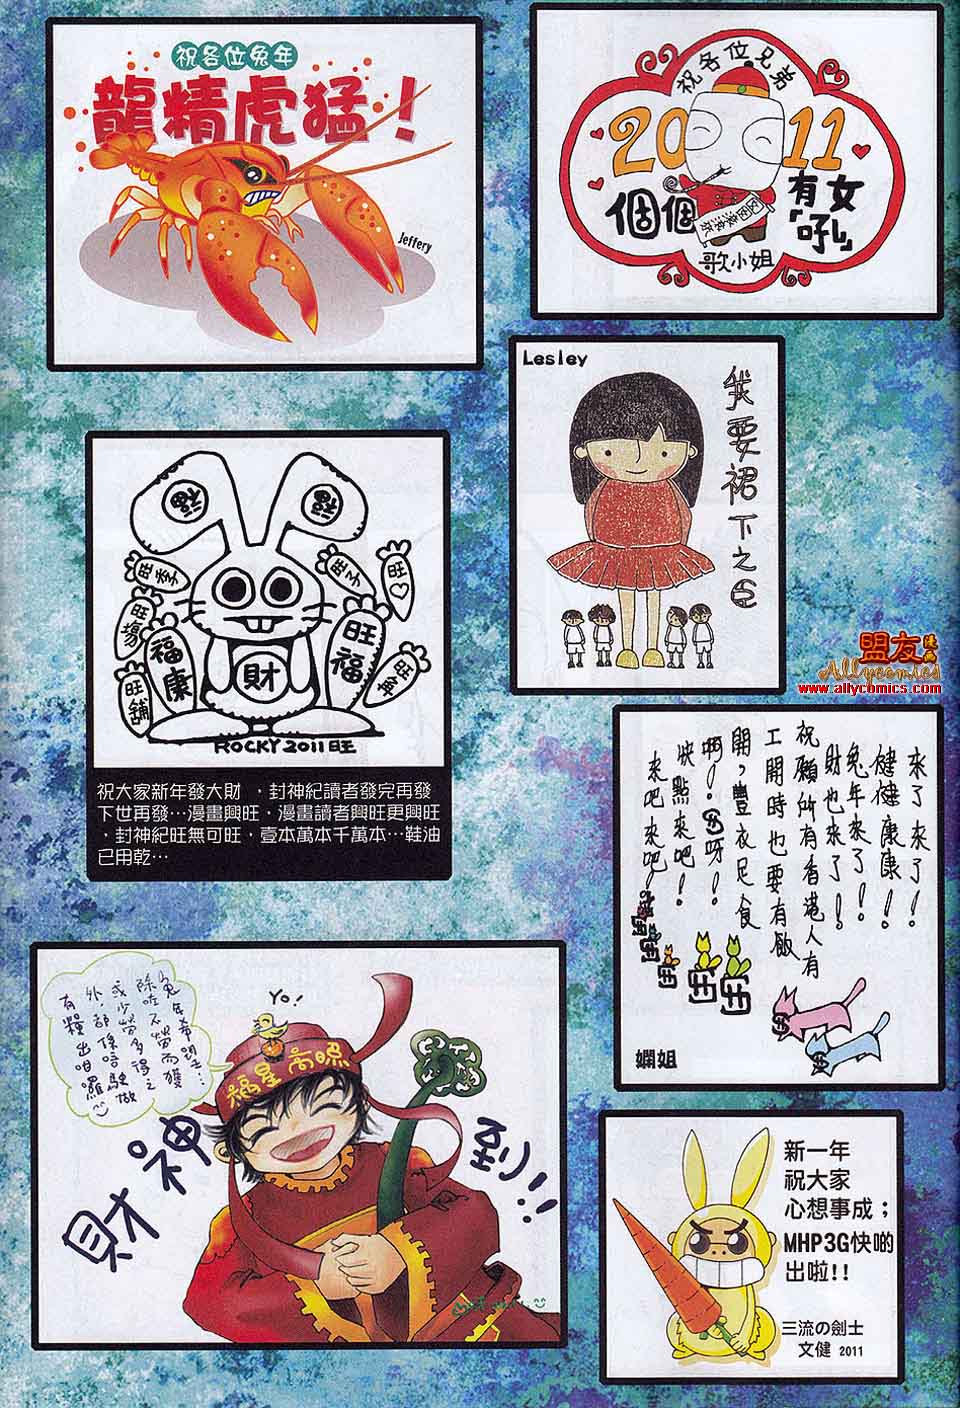 祝各位兔年
龍精虎猛！
Jeffery
祝各位兄弟
2011
個個
有女
「吼」
歌小姐
Lesley
我要裙下之臣
福
福
旺季
旺子
旺♡
旺場
旺舖
福康
財
旺福
ROCKY 2011 旺
祝大家新年發大財 ‧封神紀讀者發完再發
下世再發…漫畫興旺‧漫畫讀者興旺更興旺
‧封神紀旺無可旺‧壹本萬本千萬本…鞋油
已用乾…
盟友
漫画
Allycomics
www.allycomics.com
來了來了！
健健康康！
兔年來了！
財也來了！
祝願所有香港人有
工開時也要有飯
開，豐衣足食
啊！呀！
快點來吧！
來吧來吧！
嫻姐
兔年希望…
除咗不勞而獲
或少勞多得之
外，都係唔駛做
有糧出咁囉
Yo!
福星高照
財神到!!
新一年
祝大家
心想事成；
MHP3G快啲
出啦!!
三流の劍士
文健 2011